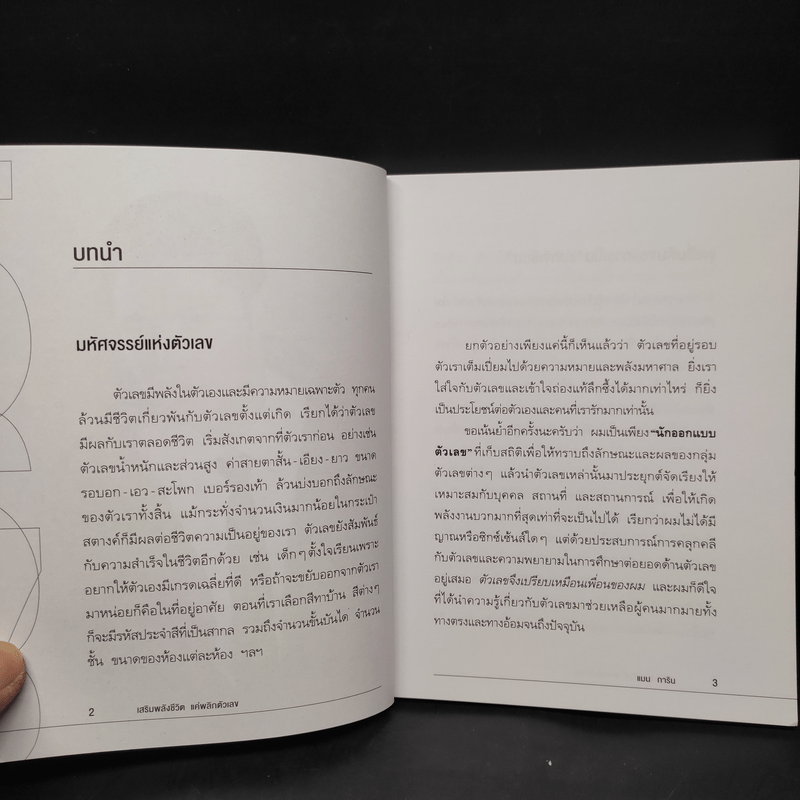 บทนำ
มหัศจรรย์แห่งตัวเลข
ตัวเลขมีพลังในตัวเองและมีความหมายเฉพาะตัว ทุกคน
ล้วนมีชีวิตเกี่ยวพันกับตัวเลขตั้งแต่เกิด เรียกได้ว่าตัวเลข
มีผลกับเราตลอดชีวิต เริ่มสังเกตจากที่ตัวเราก่อน อย่างเช่น
ตัวเลขน้ำหนักและส่วนสูง ค่าสายตาสั้น-เอียง-ยาว ขนาด
รอบอก-เอว-สะโพก เบอร์รองเท้า ล้วนบ่งบอกถึงลักษณะ
ของตัวเราทั้งสิ้น แม้กระทั่งจำนวนเงินมากน้อยในกระเป๋า
สตางค์ก็มีผลต่อชีวิตความเป็นอยู่ของเรา ตัวเลขยังสัมพันธ์
กับความสำเร็จในชีวิตอีกด้วย เช่น เด็กๆ ตั้งใจเรียนเพราะ
อยากให้ตัวเองมีเกรดเฉลี่ยที่ดี หรือถ้าจะขยับออกจากตัวเรา
มาหน่อยก็คือในที่อยู่อาศัย ตอนที่เราเลือกสีทาบ้าน สีต่างๆ
ก็จะมีรหัสประจำสีที่เป็นสากล รวมถึงจำนวนขั้นบันได จำนวน
ชั้น ขนาดของห้องแต่ละห้อง ฯลฯ
2 เสริมพลังชีวิต แค่พลิกตัวเลข
ยกตัวอย่างเพียงแค่นี้ก็เห็นแล้วว่า ตัวเลขที่อยู่รอบ
ตัวเราเต็มเปี่ยมไปด้วยความหมายและพลังมหาศาล ยิ่งเรา
ใส่ใจกับตัวเลขและเข้าใจถ่องแท้ลึกซึ้งได้มากเท่าไหร่ ก็ยิ่ง
เป็นประโยชน์ต่อตัวเองและคนที่เรารักมากเท่านั้น
ขอเน้นย้ำอีกครั้งนะครับว่า ผมเป็นเพียง "นักออกแบบ
ตัวเลข" ที่เก็บสถิติเพื่อให้ทราบถึงลักษณะและผลของกลุ่ม
ตัวเลขต่างๆ แล้วนำตัวเลขเหล่านั้นมาประยุกต์จัดเรียงให้
เหมาะสมกับบุคคล สถานที่ และสถานการณ์ เพื่อให้เกิด
พลังงานบวกมากที่สุดเท่าที่จะเป็นไปได้ เรียกว่าผมไม่ได้มี
ญาณหรือซิกซ์เซ้นส์ใดๆ แต่ด้วยประสบการณ์การคลุกคลี
กับตัวเลขและความพยายามในการศึกษาต่อยอดด้านตัวเลข
อยู่เสมอ ตัวเลขจึงเปรียบเหมือนเพื่อนของผม และผมก็ดีใจ
ที่ได้นำความรู้เกี่ยวกับตัวเลขมาช่วยเหลือผู้คนมากมายทั้ง
ทางตรงและทางอ้อมจนถึงปัจจุบัน
แมน การิน 3